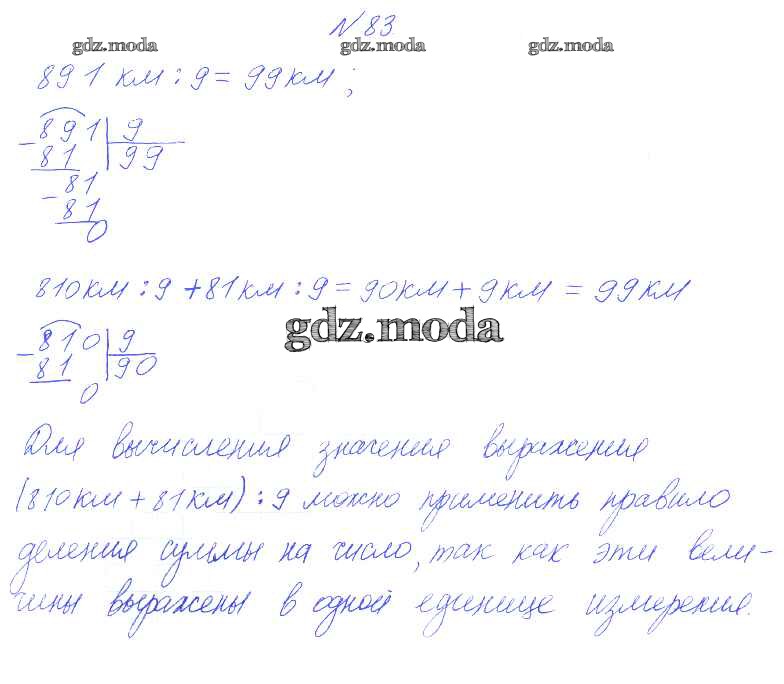 № 83
gdz.moda gdz.moda gdz.moda
891 км : 9 = 99 км ;
- 891 | 9
81 | 99
- 81
81
0
810 км : 9 + 81 км : 9 = 90 км + 9 км = 99 км
gdz.moda
- 810 | 9
81 | 90
0
Для вычисления значения выражения
(810 км + 81 км) : 9 можно применить правило
деления суммы на число, так как эти вели-
чины выражены в одной единице измерения.